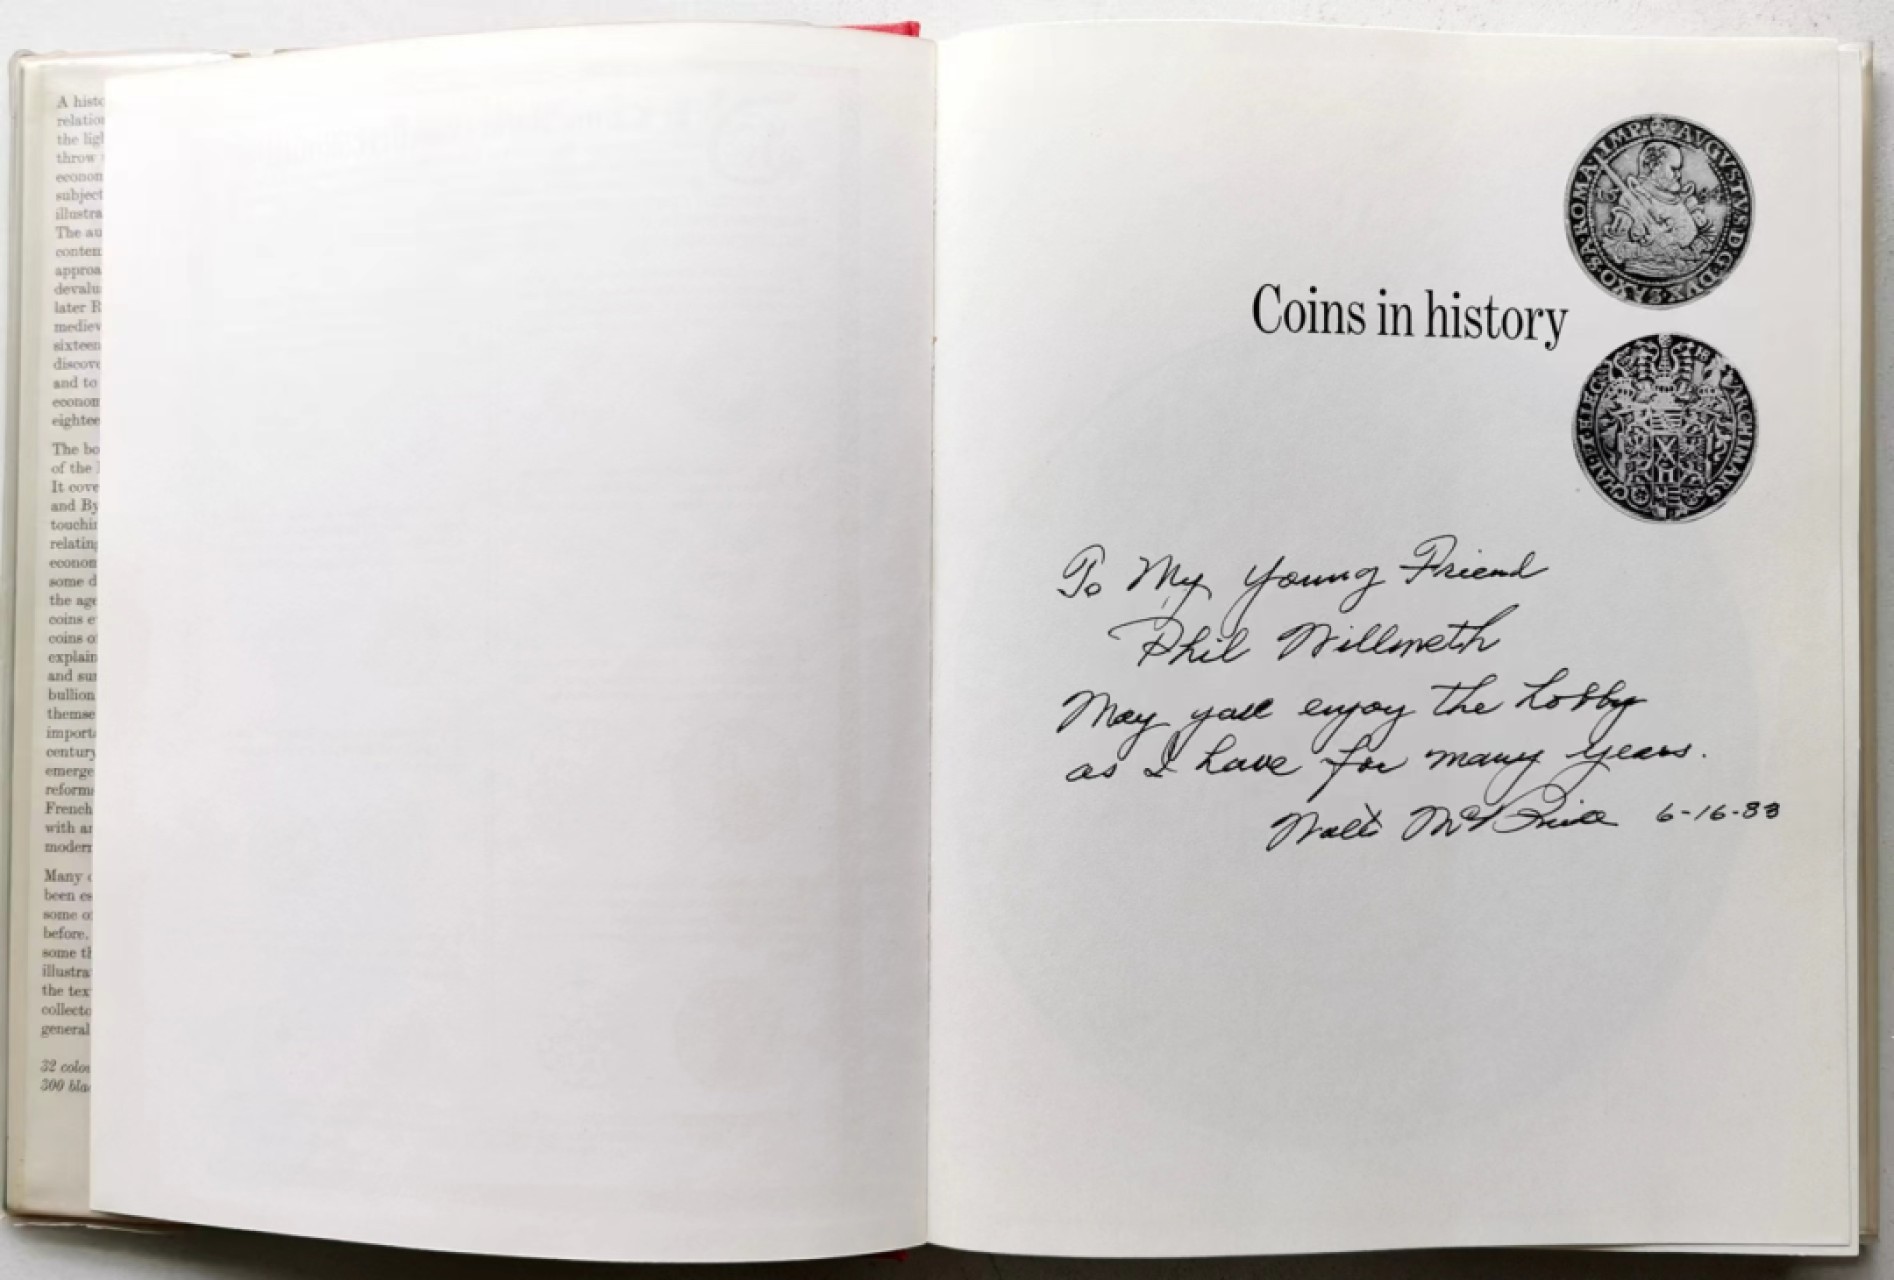 A histo
relation
the ligh
throw
econom
subject
illustra
The au
conten
approa
devalu
later R
mediev
sixteen
discove
and to
econom
eightee
The bo
of the
It cove
and By
touchin
relating
econom
some d
the age
coins e
coins o
explain
and sur
bullion
themse
importa
century
emerge
reforms
French
with an
modern
Many
been es
some of
before.
some th
illustra
the tex
collecto
general
32 colou
300 bla
SA·ROMA·IMP· AVGVSTVS·D·G·DVX·SAXO
Coins in history
ARCHIMARS CHAL·ET·ELEC
To My Young Friend
Phil Willmeth
May you enjoy the hobby
as I have for many years.
Walt 6-16-83